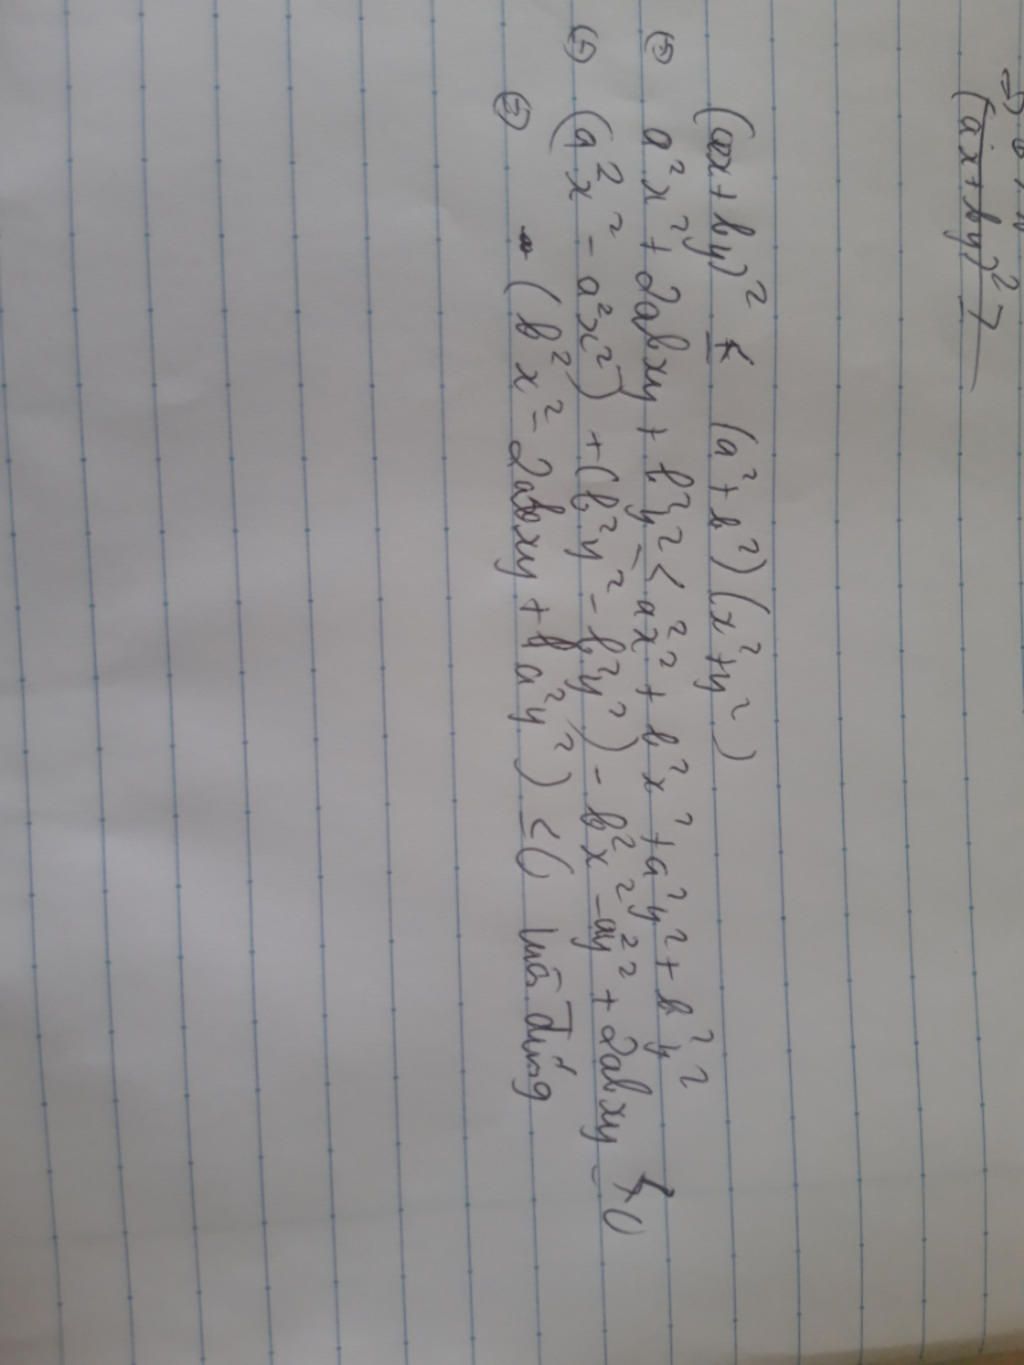 (ax+by)² ≤ (a²+b²)(x²+y²)
⇔ a²x² + 2abxy + b²y² ≤ a²x² + b²x² + a²y² + b²y²
⇔ (a²x² - a²x²) + (b²y² - b²y²) - b²x² - a²y² + 2abxy ≤ 0
⇔ - (b²x² - 2abxy + a²y²) ≤ 0 luôn đúng